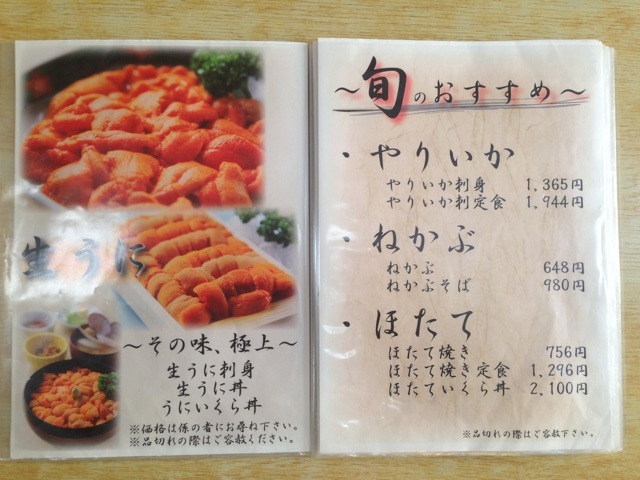 生うに
～その味、極上～
生うに刺身
生うに丼
うにいくら丼
※価格は係の者にお尋ね下さい。
※品切れの際はご容赦ください。
～旬のおすすめ～
・やりいか
やりいか刺身 1,365円
やりいか刺定食 1,944円
・ねかぶ
ねかぶ 648円
ねかぶそば 980円
・ほたて
ほたて焼き 756円
ほたて焼き定食 1,296円
ほたていくら丼 2,100円
※品切れの際はご容赦下さい。